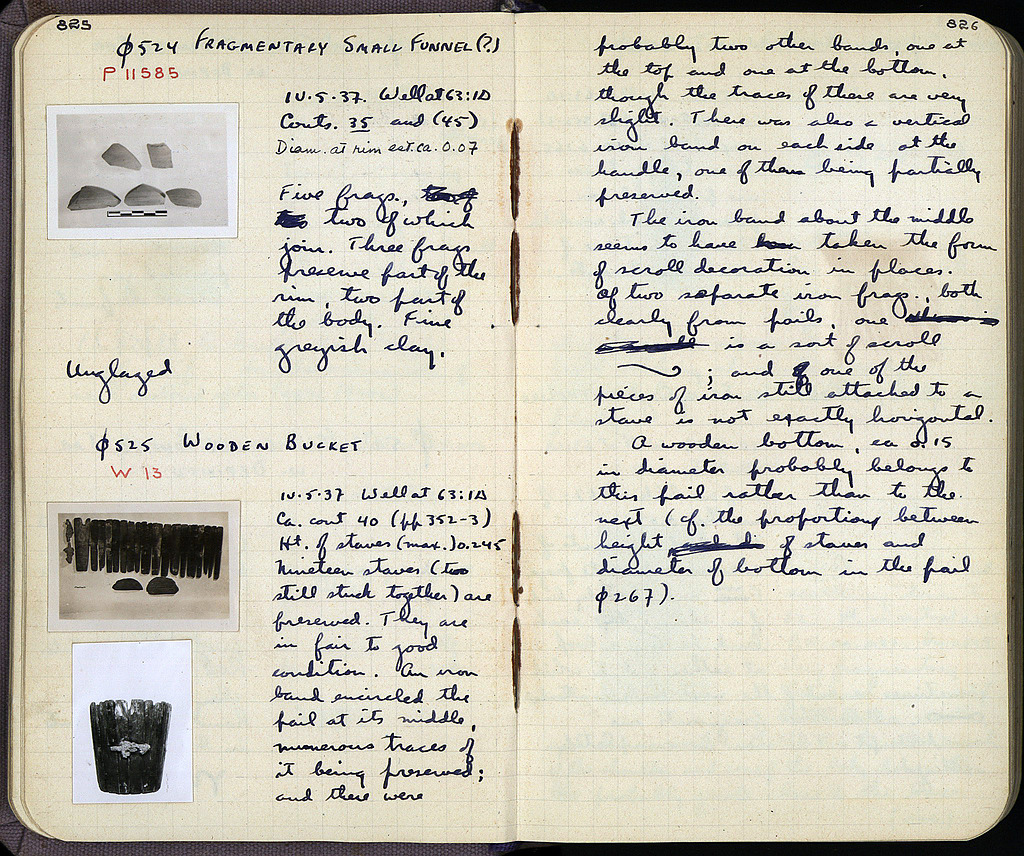 825
φ524 FRAGMENTARY SMALL FUNNEL(?)
P 11585
IV.5.37. Well at 63:ΙΔ
Conts. 35 and (45)
Diam. at rim est. ca. 0.07
Five frags.,
two of which
join. Three frags
preserve part of the
rim, two part of
the body. Fine
greyish clay.
Unglazed
φ525 WOODEN BUCKET
W 13
IV.5.37 Well at 63:ΙΔ
Ca. cont 40 (pp 352-3)
Ht. of staves (max.) 0.245
Nineteen staves (two
still stuck together) are
preserved. They are
in fair to good
condition. An iron
band encircled the
pail at its middle,
numerous traces of
it being preserved;
and there were
826
probably two other bands, one at
the top and one at the bottom,
though the traces of there are very
slight. There was also a vertical
iron band on each side at the
handle, one of them being partially
preserved.
The iron band about the middle
seems to have taken the form
of scroll decoration in places.
Of two separate iron frags., both
clearly from pails, one
is a sort of scroll
; and of one of the
pieces of iron still attached to a
stave is not exactly horizontal.
A wooden bottom, ca 0.15
in diameter probably belongs to
this pail rather than to the
next (cf. the proportions between
height of staves and
diameter of bottom in the pail
φ267).